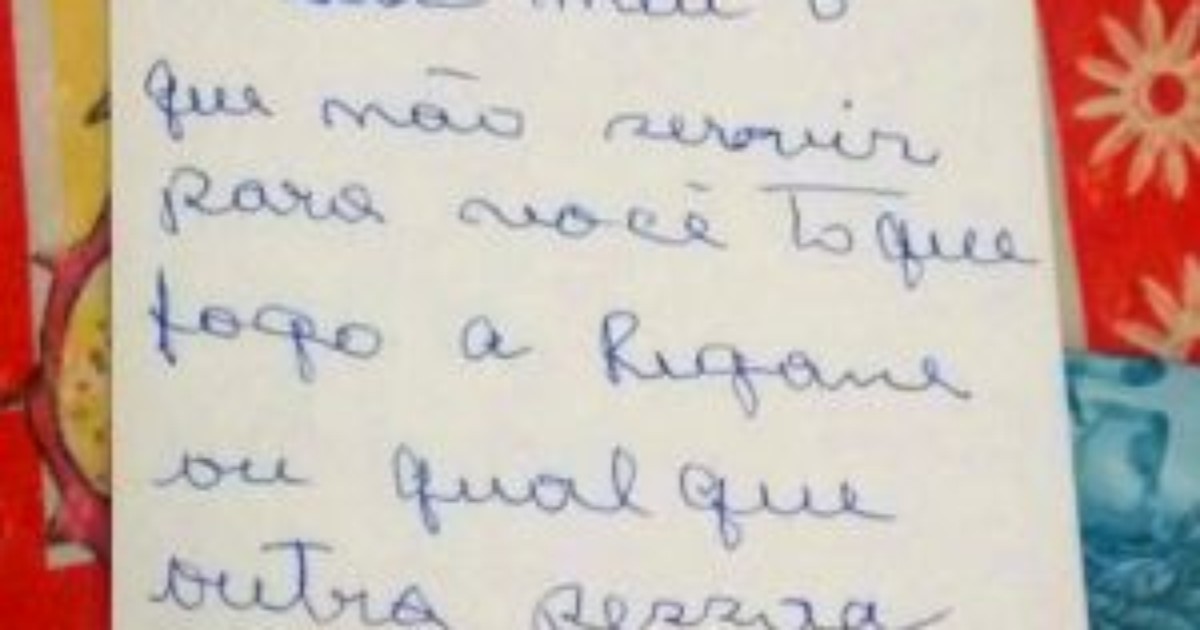 que não servir
para você to que
fogo a Regane
ou qual que
outra pessoa